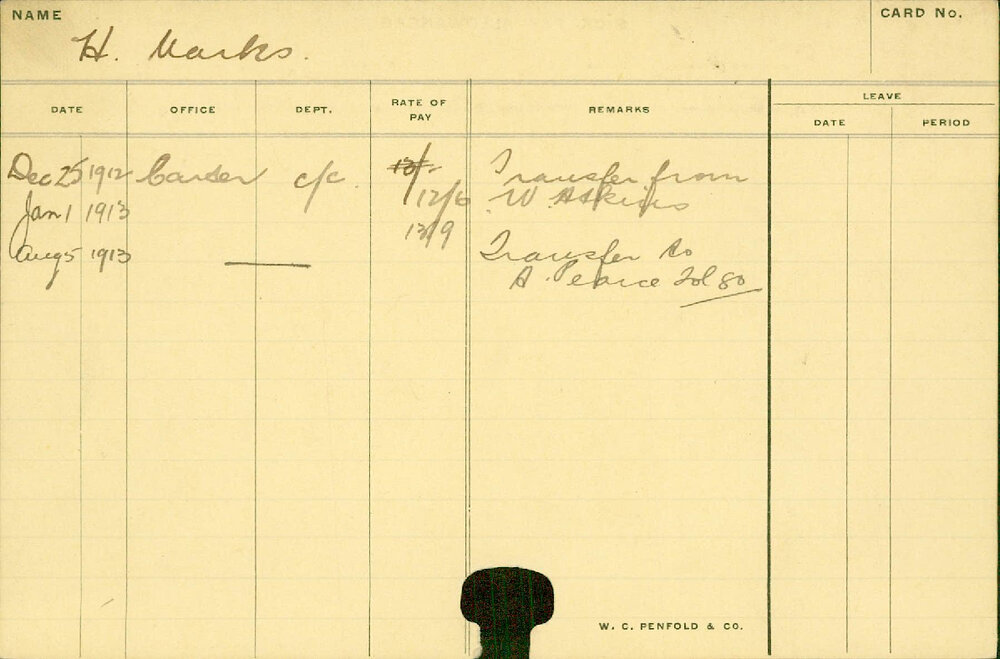 NAME
CARD No.
H. Marks.
DATE OFFICE DEPT. RATE OF PAY REMARKS LEAVE
DATE PERIOD
Dec 25 1912 Carder c/c 12/- Transfer from
12/6 W Atkins
Jan 1 1913
13/9
Aug 5 1913 Transfer to
A. Pearce Fol 80
W. C. PENFOLD & CO.